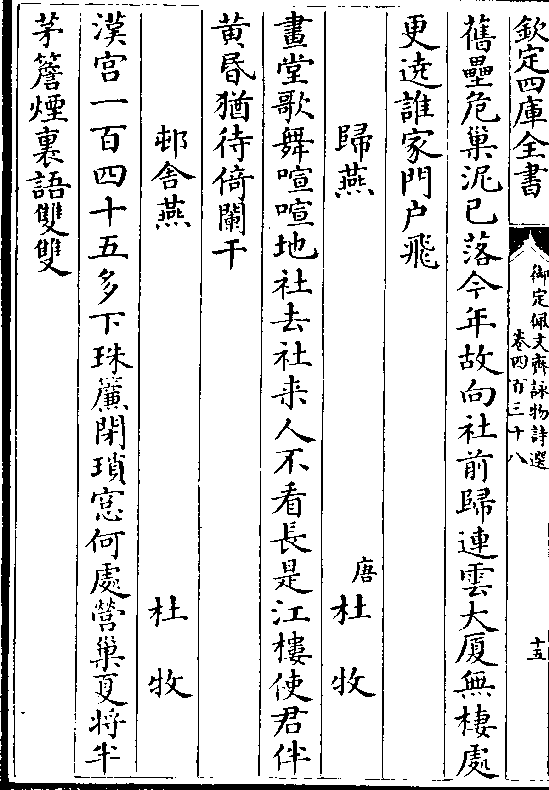 欽定四庫全書
御定佩文齋詠物詩選
卷四百三十八
十五
舊壘危巢泥已落今年故向社前歸連雲大厦無棲處
更遶誰家門户飛
歸燕
唐杜牧
畫堂歌舞喧喧地社去社来人不看長是江樓使君伴
黄昏猶待倚闌干
邨舍燕
杜牧
漢宫一百四十五多下珠簾閉瑣窓何處營巢夏将半
茅簷煙裏語雙雙